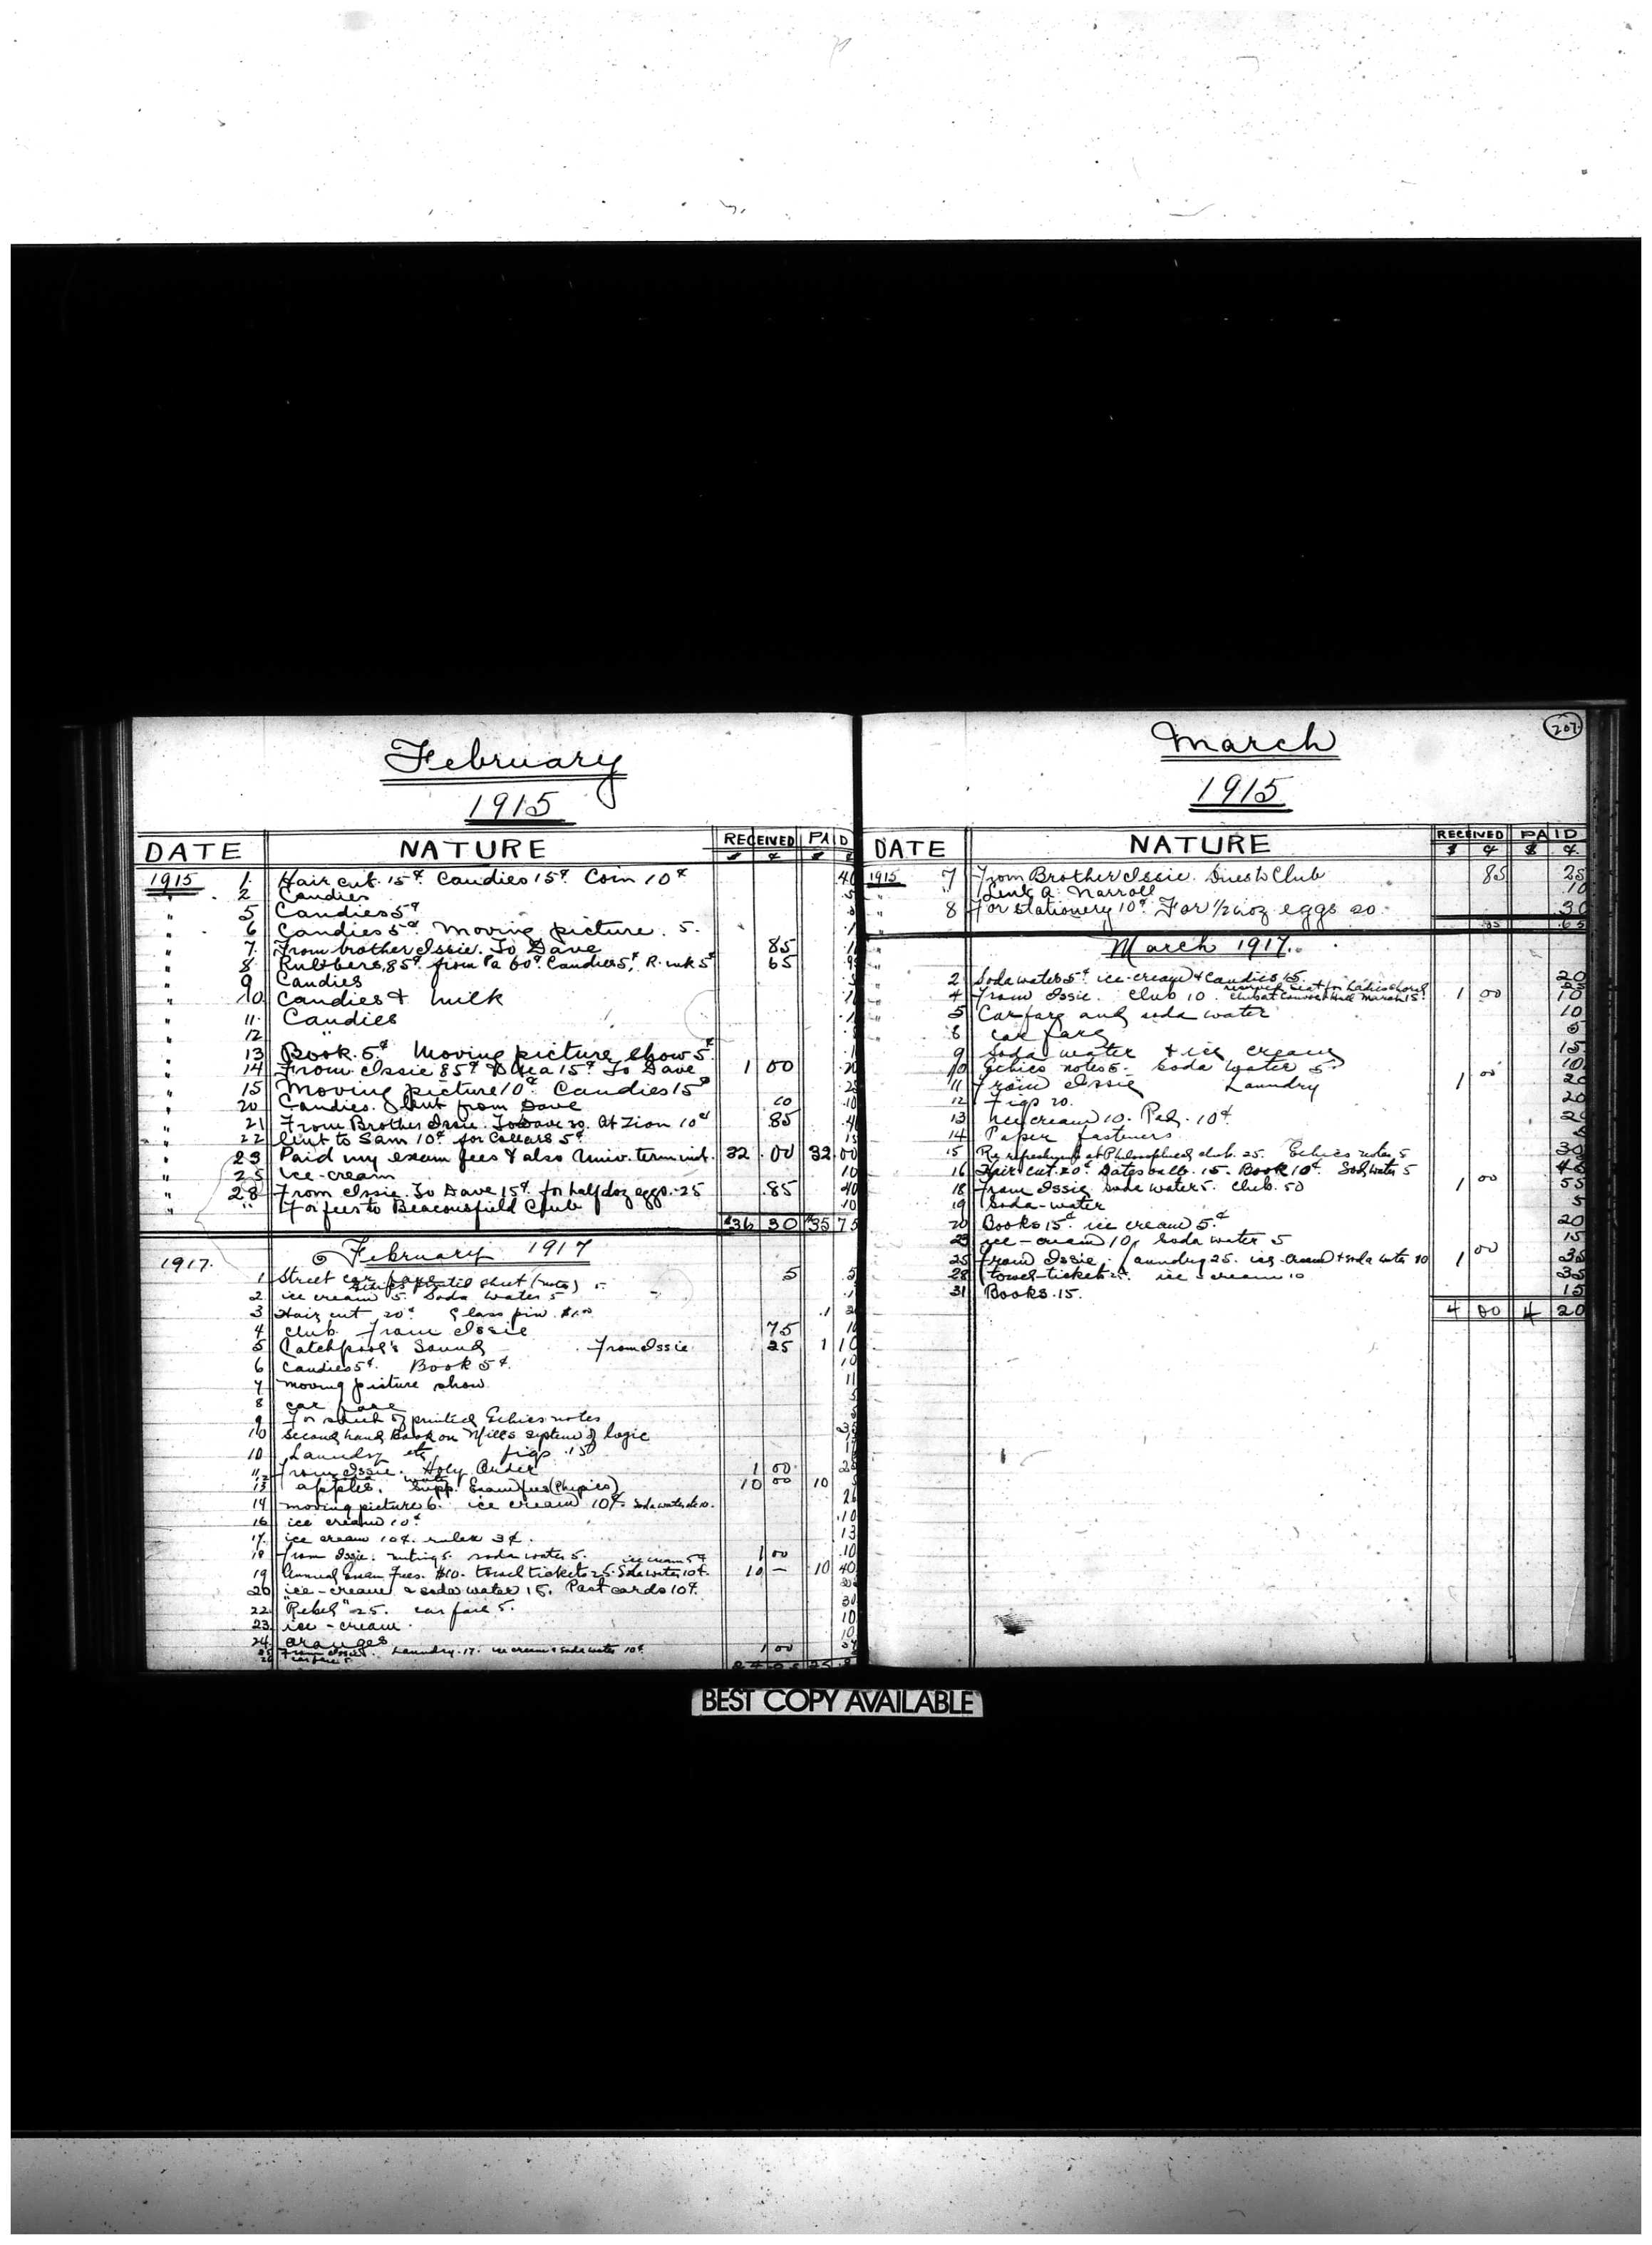 February
1915
DATE NATURE RECEIVED PAID
$ ¢ $ ¢
1915 1 Hair cut 15¢ Candies 15¢ Coin 10¢ 40
" 2 Candies 5
" 5 Candies 5¢
" 6 Candies 5¢ Moving picture. 5.
" 7 From brother Issie. To Dave 85
" 8 Rubbers, 85¢ from Pa 60¢ Candies 5¢, R. ink 5¢ 65
" 9 Candies
" 10 Candies & milk
" 11 Candies
" 12 "
" 13 Book. 5¢ Moving picture show 5¢
" 14 From Issie 85¢ 15¢ To Dave 1 00
" 15 Moving picture 10¢ Candies 15¢
" 20 Candies. lent from Dave 10
" 21 From Brother Issie. To Dave 20. At Zion 10¢ 85
" 22 lent to Sam 10¢ for Collars 5¢ 15
" 23 Paid my exam fees & also Univ. term 32 00 32 00
" 25 Ice-cream 10
" 28 From Issie. To Dave 15¢ for half doz eggs. 25 85 40
" " For fees to Beaconsfield Club 10
$36 30 $35 75
February 1917
1917.
1 Street car fare 5 5
printed sheet (notes) 5
2 ice cream 5. Soda water 5
3 Hair cut 20¢ Glass pin $1.00
4 Club From Issie 75 10
5 Catchpool's Sound From Issie 25 1 10
6 Candies 5¢. Book 5¢. 10
7 moving picture show 11
8 car fare 5
9 For sheet of printed Ethics notes
10 Second hand Book on Mill's system of logic
10 Laundry etc figs .15
11 From Issie. Holy 1 00
13 apples. Supp. Exam fees (Physics) 10 00 10
14 moving picture 6. ice cream 10¢. Soda water 10. 26
16 ice cream 10¢ .10
17. ice cream 10¢. ruler 3¢. 13
18 From Issie. soda water 5. 1 00 .10
ice cream 5¢
19 Annual Exam Fees. $10. towel tickets 25. Soda water 10¢. 10 — 10 40
20 ice-cream & soda water 15. Post cards 10¢.
22 "Rebel" 25. car fare 5. 30
23 ice-cream. 10
24 oranges 10
From Issie. Laundry. 17. ice cream & soda water 10¢ 1 00
car fare 5
207.
March
1915
DATE NATURE RECEIVED PAID
$ ¢ $ ¢
1915 7 From Brother Issie. Dues to Club 85 25
" " Lent A. Narroll 10
" 8 For stationery 10¢ For 1/2 doz eggs 20. 30
85 65
March 1917.
2 Soda water 5¢ ice-cream & Candies 15. 20
4 From Issie. Club 10. 1 00 10
5 Car fare and soda water 10
8 car fare 5
9 soda water & ice cream 15
10 Ethics notes 5. soda water 5. 10
11 From Issie Laundry 1 00 20
12 Figs 20. 20
13 ice cream 10. Pad. 10¢ 20
14 Paper fasteners 5
15 refreshment at Philosophical club. 25. Ethics notes 5 30
16 Hair cut. 20¢ Dates 15. Book 10¢. Soda water 5
18 From Issie soda water 5. Club. 50 1 00 55
19 Soda-water 5
20 Books 15¢ ice cream 5¢ 20
23 ice-cream 10, soda water 5 15
25 From Issie. laundry 25. ice-cream & soda water 10 1 00 35
28 towel-tickets 25. ice cream 10 35
31 Books. 15. 15
4 00 4 20
BEST COPY AVAILABLE